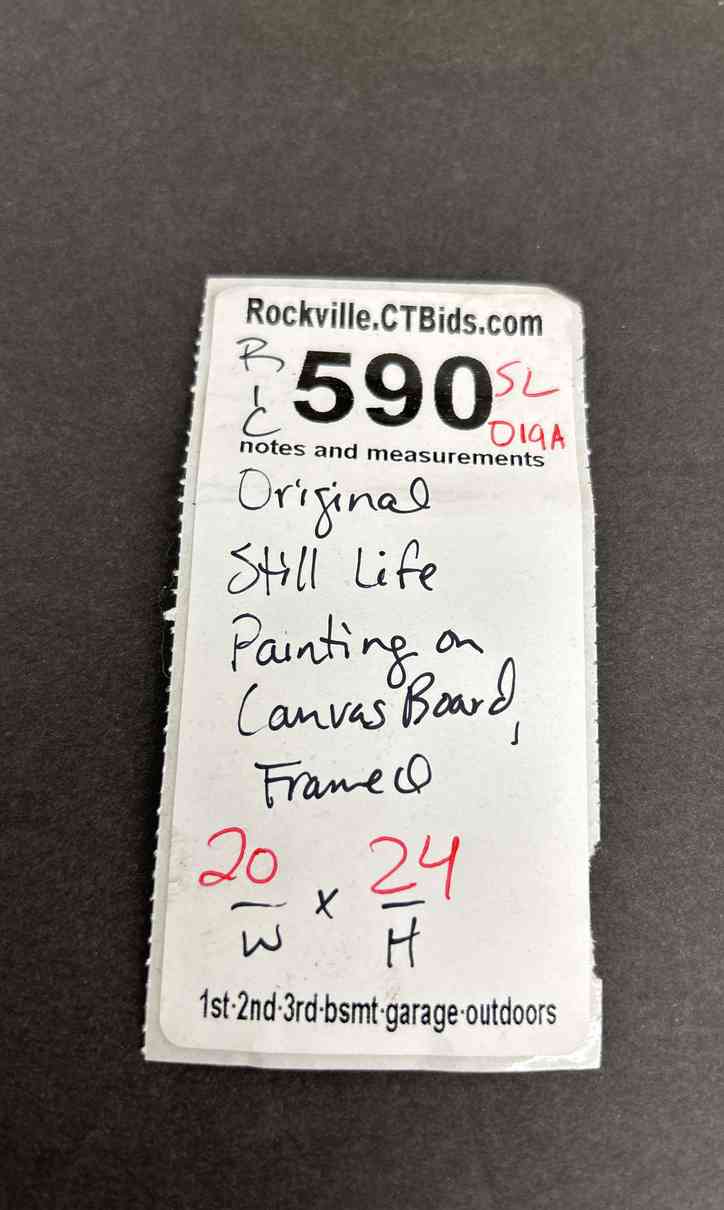 Rockville.CTBids.com
RIC 590 SL
019A
notes and measurements
Original
Still Life
Painting on
Canvas Board,
Framed
20 x 24
W H
1st·2nd·3rd·bsmt·garage·outdoors